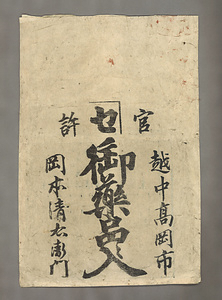 官許
セ
越中高岡市
御藥品入
岡本清右衛門